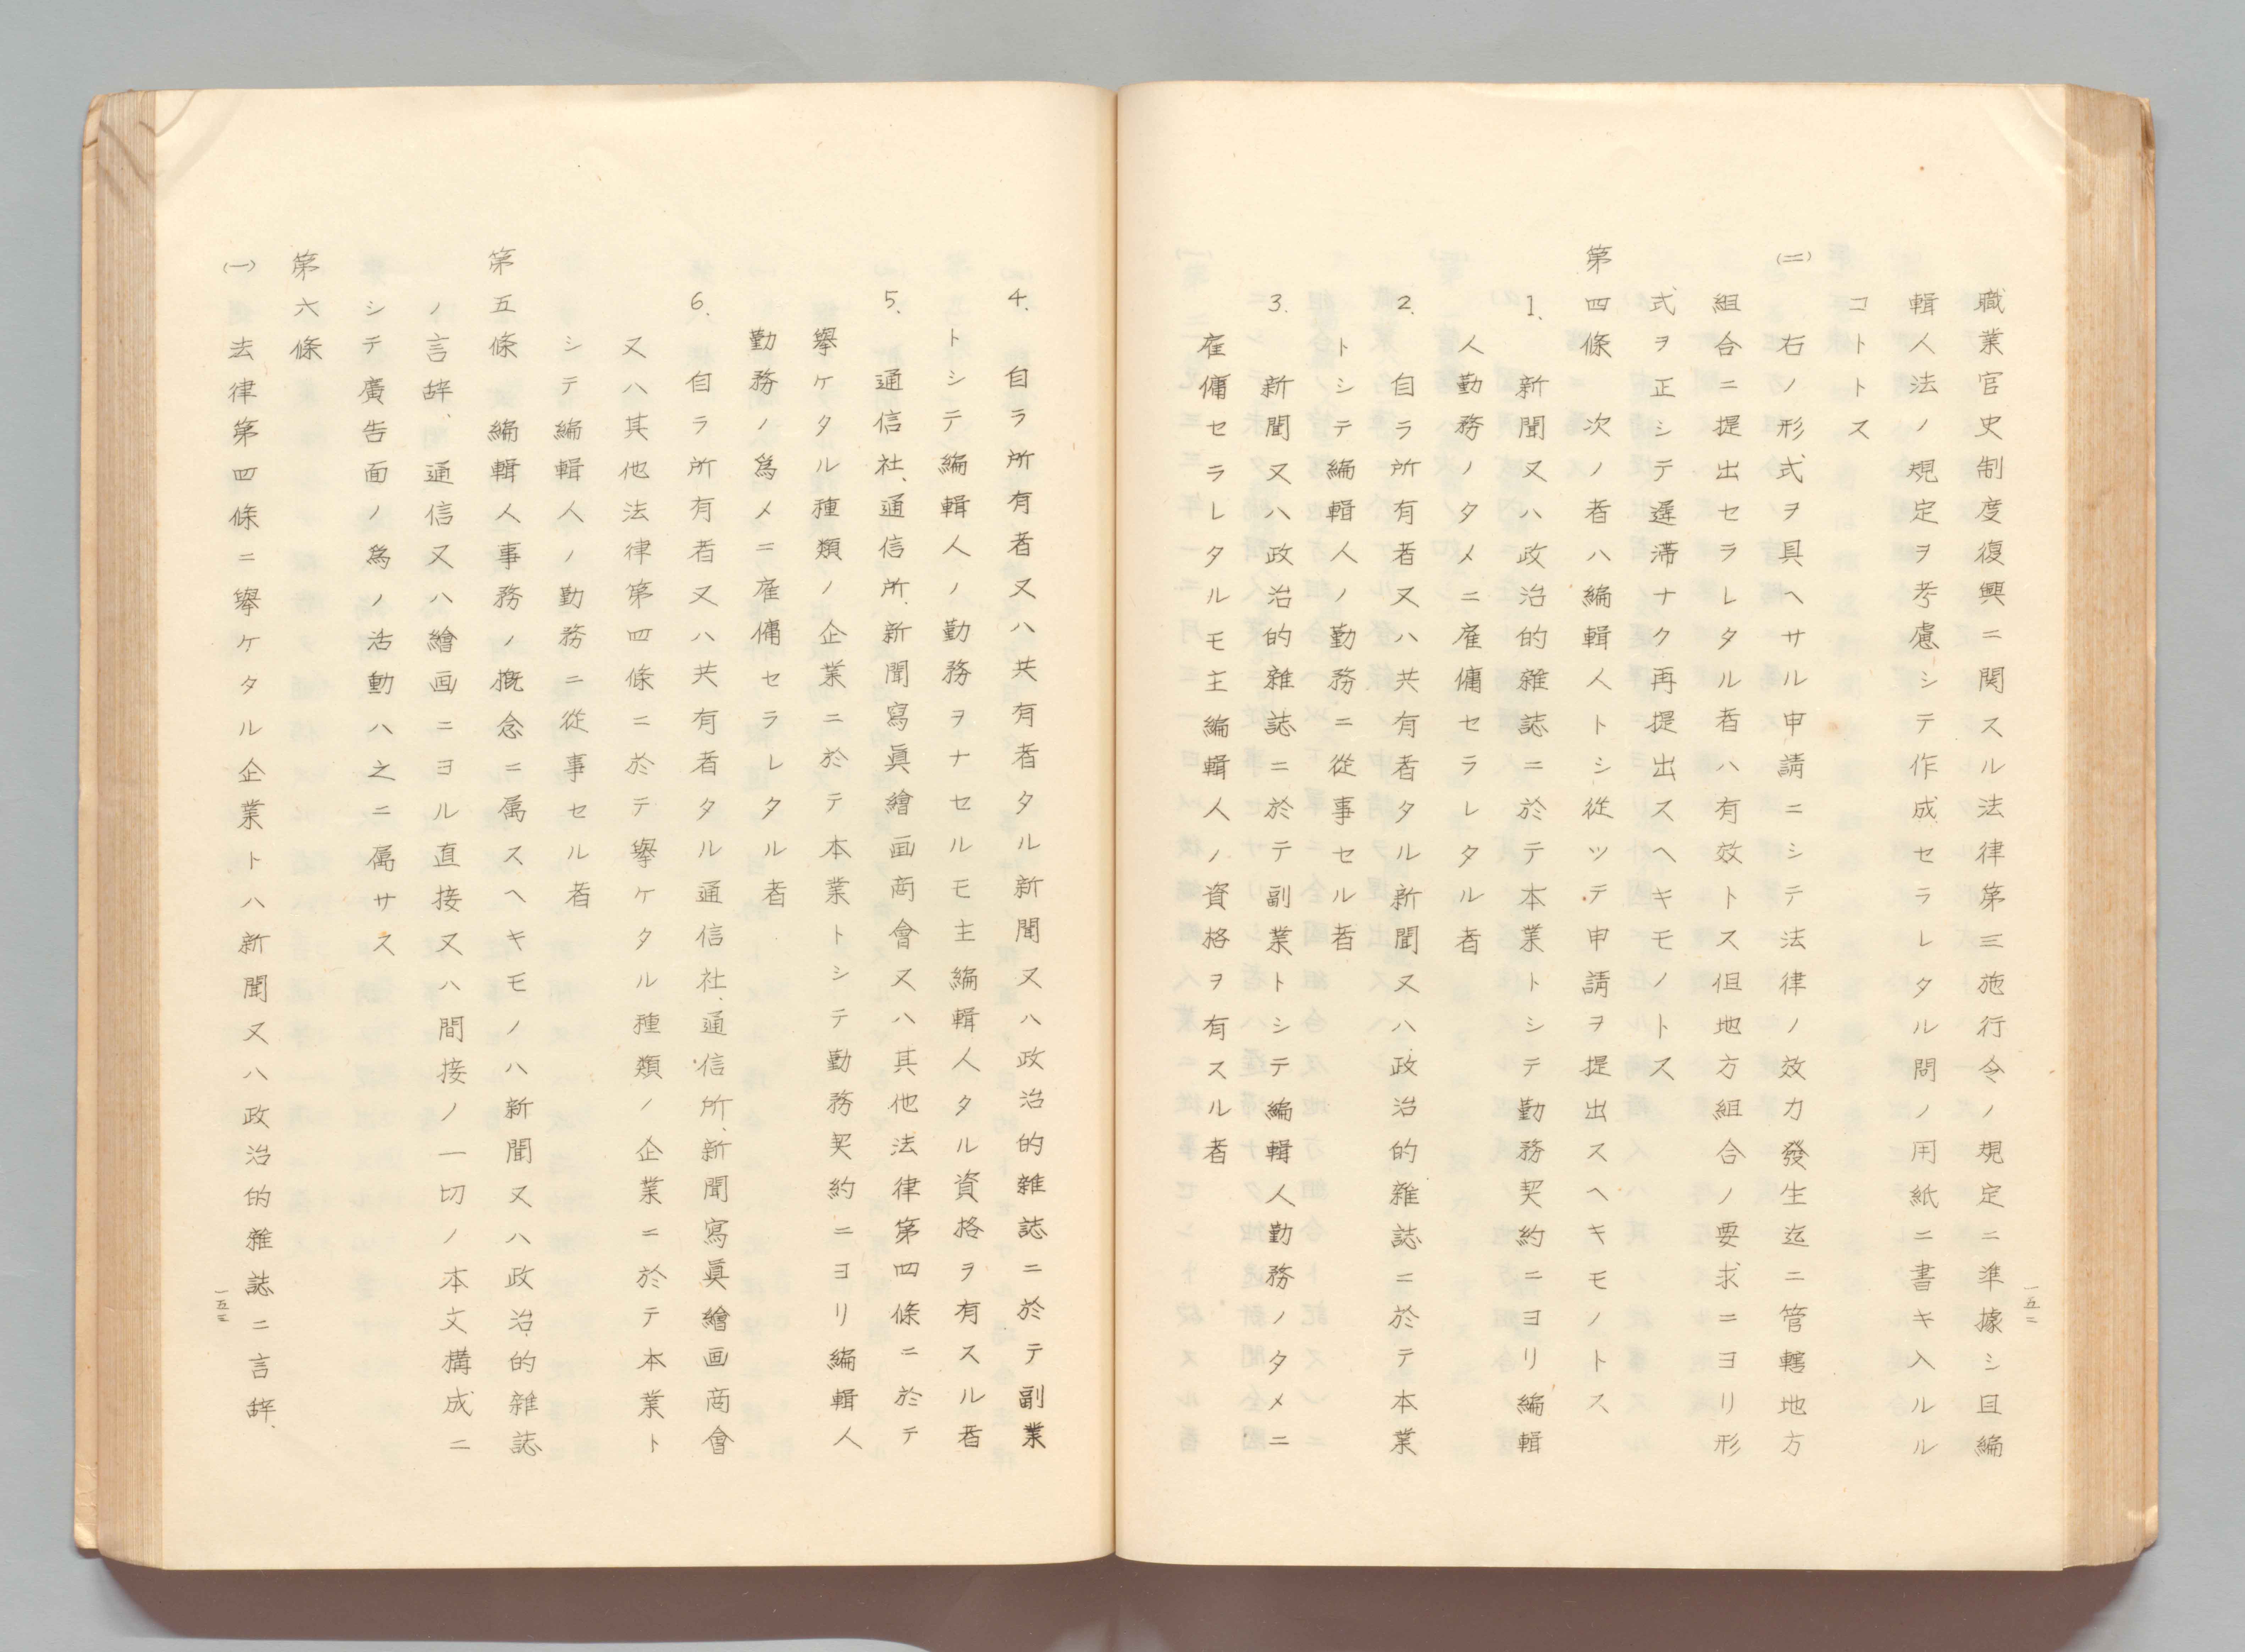 職業官史制度復興ニ関スル法律第三施行令ノ規定ニ準據シ且編
輯人法ノ規定ヲ考慮シテ作成セラレタル問ノ用紙ニ書キ入ルル
コトトス
(二)右ノ形式ヲ具ヘサル申請ニシテ法律ノ效力發生迄ニ管轄地方
組合ニ提出セラレタル者ハ有效トス但地方組合ノ要求ニヨリ形
式ヲ正シテ遅滞ナク再提出スヘキモノトス
第四條 次ノ者ハ編輯人トシ從ツテ申請ヲ提出スヘキモノトス
1. 新聞又ハ政治的雑誌ニ於テ本業トシテ勤務契約ニヨリ編輯
人勤務ノタメニ雇傭セラレタル者
2. 自ラ所有者又ハ共有者タル新聞又ハ政治的雑誌ニ於テ本業
トシテ編輯人ノ勤務ニ從事セル者
3. 新聞又ハ政治的雑誌ニ於テ副業トシテ編輯人勤務ノタメニ
雇傭セラレタルモ主編輯人ノ資格ヲ有スル者
一五二
4. 自ラ所有者又ハ共有者タル新聞又ハ政治的雑誌ニ於テ副業
トシテ編輯人ノ勤務ヲナセルモ主編輯人タル資格ヲ有スル者
5. 通信社、通信所、新聞寫眞繪画商會又ハ其他法律第四條ニ於テ
擧ケタル種類ノ企業ニ於テ本業トシテ勤務契約ニヨリ編輯人
勤務ノ爲メニ雇傭セラレタル者
6. 自ラ所有者又ハ共有者タル通信社、通信所、新聞寫眞繪画商會
又ハ其他法律第四條ニ於テ擧ケタル種類ノ企業ニ於テ本業ト
シテ編輯人ノ勤務ニ從事セル者
第五條 編輯人事務ノ概念ニ属スヘキモノハ新聞又ハ政治的雑誌
ノ言辞、通信又ハ繪画ニヨル直接又ハ間接ノ一切ノ本文構成ニ
シテ廣告面ノ爲ノ活動ハ之ニ属サス
第六條
(一)法律第四條ニ擧ケタル企業トハ新聞又ハ政治的雑誌ニ言辞、
一五三